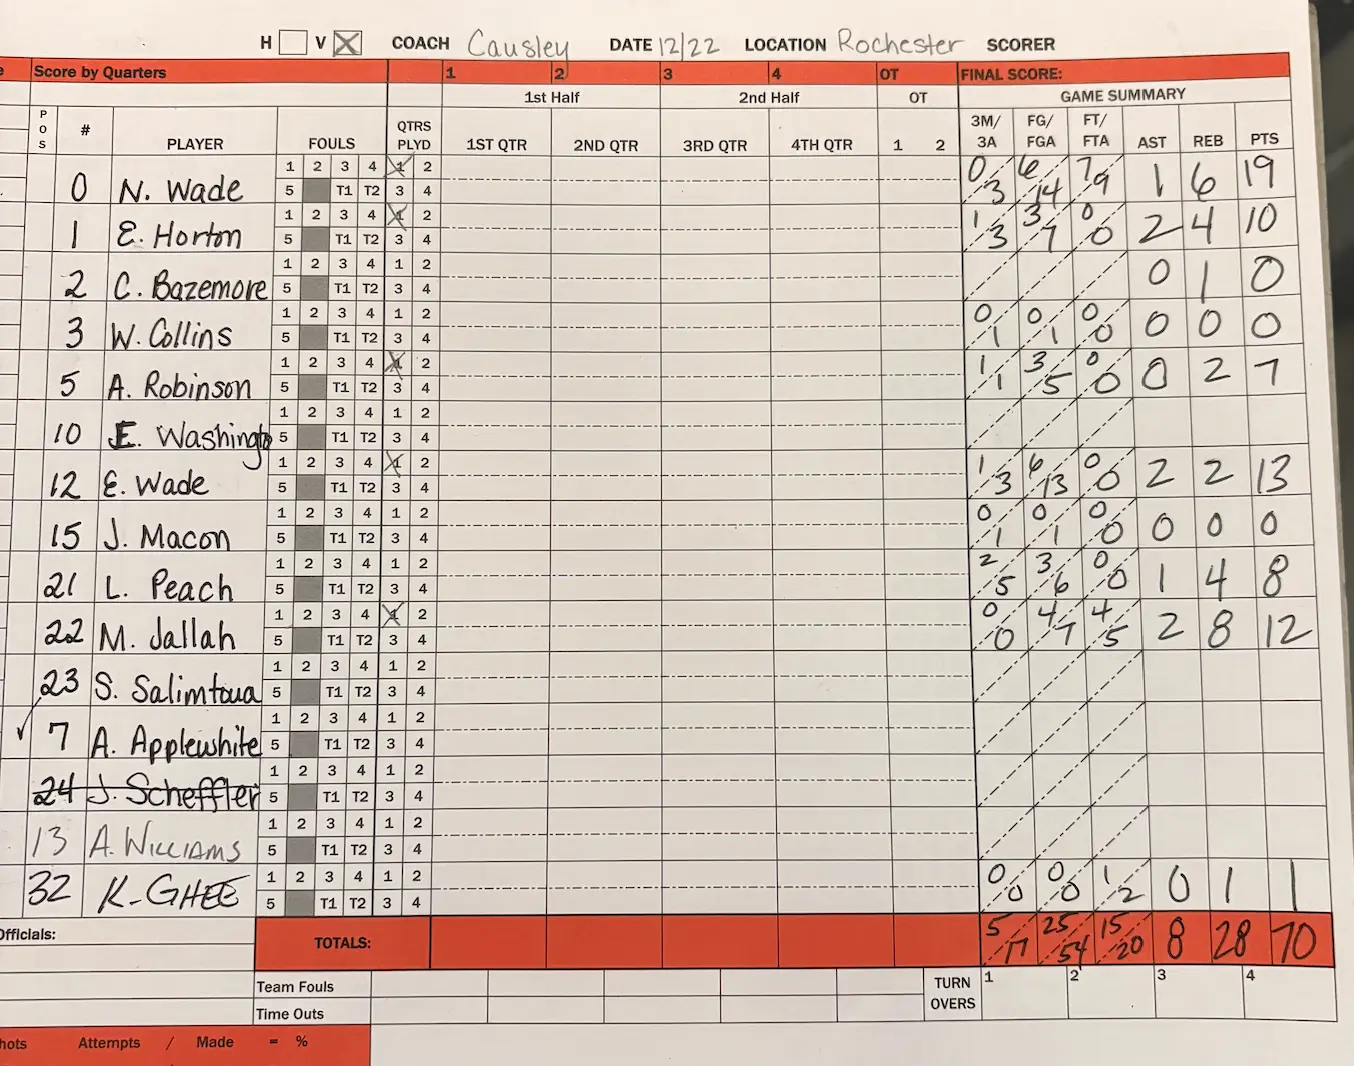 H V X COACH Causley DATE 12/22 LOCATION Rochester SCORER
Score by Quarters 1 2 3 4 OT FINAL SCORE:
1st Half 2nd Half OT GAME SUMMARY
POS # PLAYER FOULS QTRS PLYD 1ST QTR 2ND QTR 3RD QTR 4TH QTR 1 2 3M/3A FG/FGA FT/FTA AST REB PTS
1 2 3 4 1 2 0 6 7
0 N. Wade 5 T1 T2 3 4 3 14 9 1 6 19
1 2 3 4 1 2 1 3 0
1 E. Horton 5 T1 T2 3 4 3 7 0 2 4 10
1 2 3 4 1 2
2 C. Bazemore 5 T1 T2 3 4 0 1 0
1 2 3 4 1 2 0 0 0
3 W. Collins 5 T1 T2 3 4 1 1 0 0 0 0
1 2 3 4 1 2 1 3 0
5 A. Robinson 5 T1 T2 3 4 1 5 0 0 2 7
1 2 3 4 1 2
10 E. Washingto 5 T1 T2 3 4
1 2 3 4 1 2 1 6 0
12 E. Wade 5 T1 T2 3 4 3 13 0 2 2 13
1 2 3 4 1 2 0 0 0
15 J. Macon 5 T1 T2 3 4 1 1 0 0 0 0
1 2 3 4 1 2 2 3 0
21 L. Peach 5 T1 T2 3 4 5 6 0 1 4 8
1 2 3 4 1 2 0 4 4
22 M. Jallah 5 T1 T2 3 4 0 7 5 2 8 12
1 2 3 4 1 2
23 S. Salimtoua 5 T1 T2 3 4
1 2 3 4 1 2
7 A. Applewhite 5 T1 T2 3 4
1 2 3 4 1 2
24 J. Scheffler 5 T1 T2 3 4
1 2 3 4 1 2
13 A. WILLIAMS 5 T1 T2 3 4
1 2 3 4 1 2 0 0 1
32 K-GHEE 5 T1 T2 3 4 0 0 2 0 1 1
Officials: TOTALS: 5 25 15
17 54 20 8 28 70
Team Fouls TURN OVERS 1 2 3 4
Time Outs
hots Attempts / Made = %